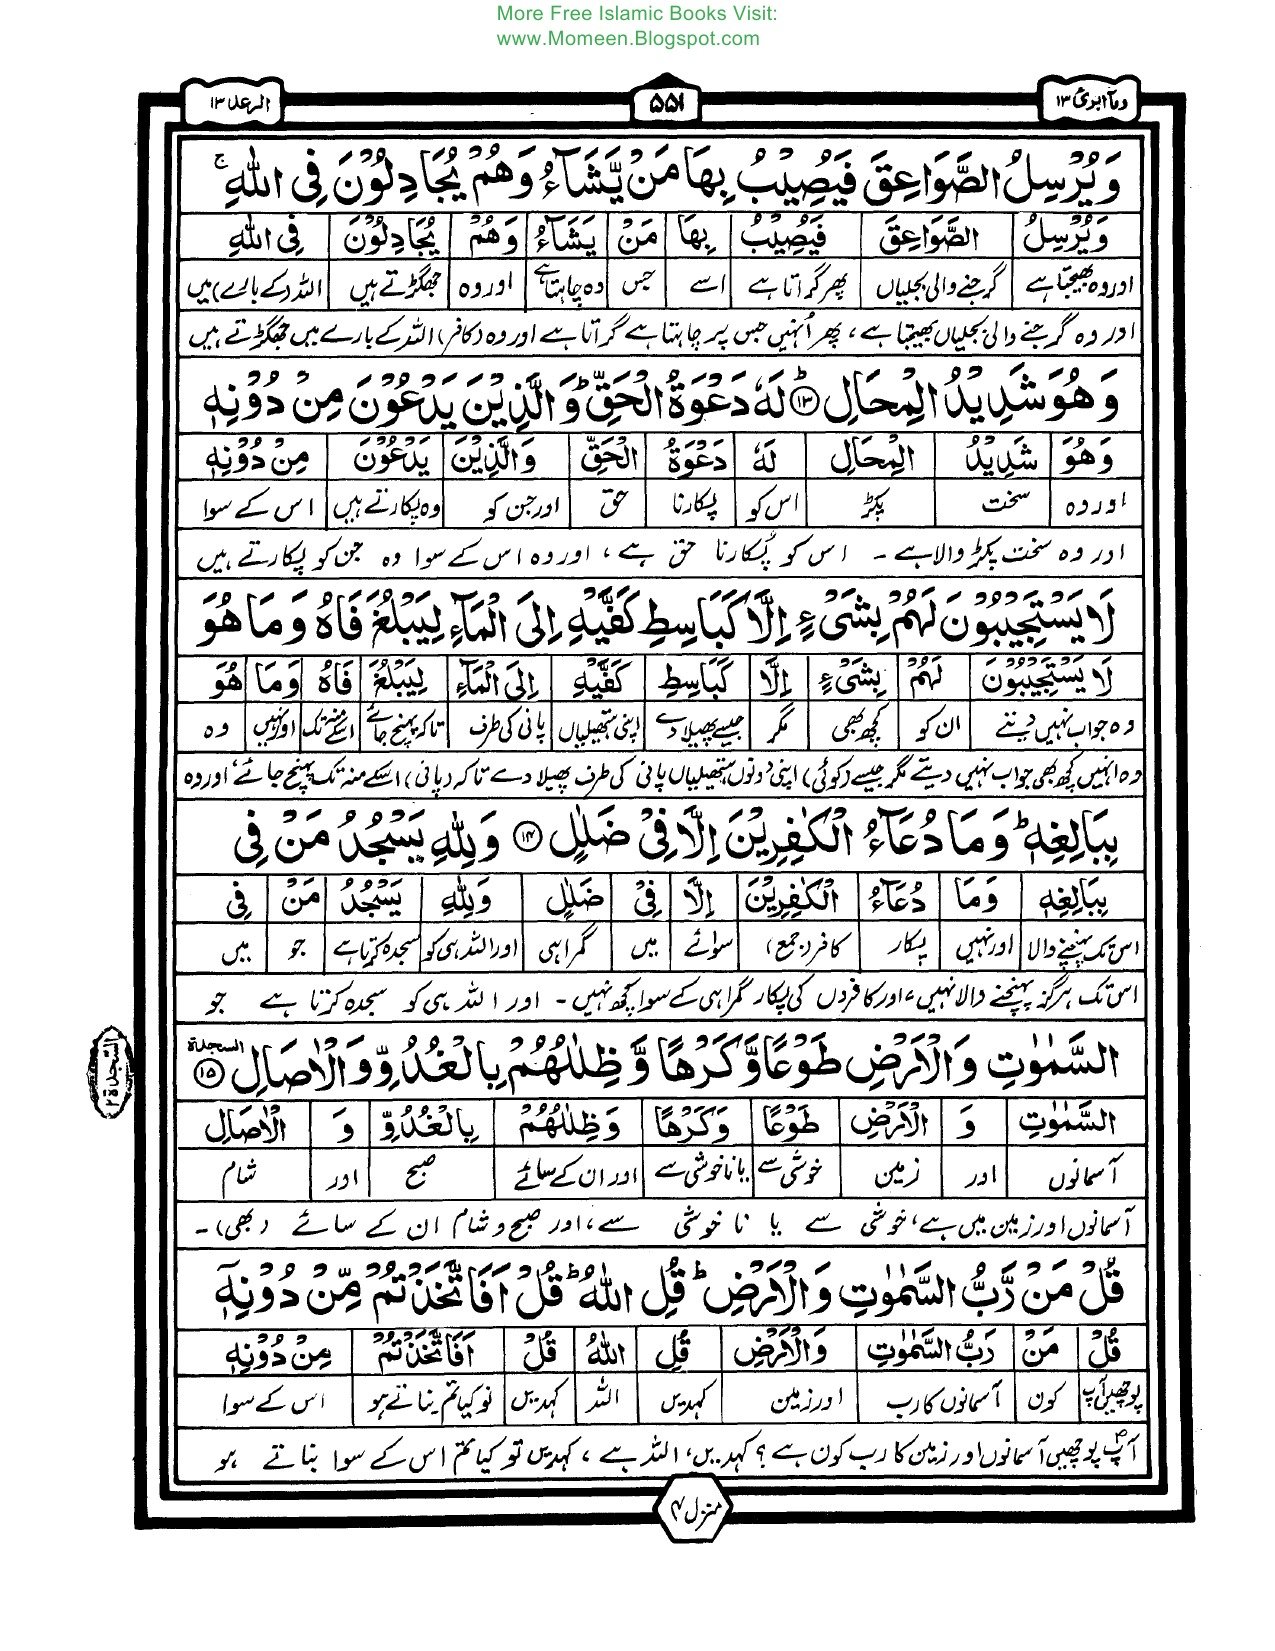 More Free Islamic Books Visit:
www.Momeen.Blogspot.com
ومآ ابرئ ١٣
٥٥١
الرعد ١٣
وَيُرْسِلُ الصَّوَاعِقَ فَيُصِيْبُ بِهَا مَنْ يَّشَآءُ وَهُمْ يُجَادِلُوْنَ فِى اللهِ ۚ
وَيُرْسِلُ الصَّوَاعِقَ فَيُصِيْبُ بِهَا مَنْ يَشَآءُ وَهُمْ يُجَادِلُوْنَ فِى اللهِ
اور وہ بھیجتا ہے گرجنے والی بجلیاں پھر گراتا ہے اسے جس وہ چاہتا ہے اور وہ جھگڑتے ہیں اللہ (کے بارے) میں
اور وہ گرجنے والی بجلیاں بھیجتا ہے، پھر اُنہیں جس پر چاہتا ہے گراتا ہے اور وہ (کافر) اللہ کے بارے میں جھگڑتے ہیں
وَهُوَ شَدِيْدُ الْمِحَالِ ۝١٣ؕ لَهٗ دَعْوَةُ الْحَقِّ ؕ وَالَّذِيْنَ يَدْعُوْنَ مِنْ دُوْنِهٖ
وَهُوَ شَدِيْدُ الْمِحَالِ لَهٗ دَعْوَةُ الْحَقِّ وَالَّذِيْنَ يَدْعُوْنَ مِنْ دُوْنِهٖ
اور وہ سخت پکڑ اس کو پکارنا حق اور جن کو وہ پکارتے ہیں اس کے سوا
اور وہ سخت پکڑ والا ہے ۔ اس کو پُکارنا حق ہے، اور وہ اس کے سوا وہ جن کو پکارتے ہیں
لَا يَسْتَجِيْبُوْنَ لَهُمْ بِشَىْءٍ اِلَّا كَبَاسِطِ كَفَّيْهِ اِلَى الْمَآءِ لِيَبْلُغَ فَاهُ وَمَا هُوَ
لَا يَسْتَجِيْبُوْنَ لَهُمْ بِشَىْءٍ اِلَّا كَبَاسِطِ كَفَّيْهِ اِلَى الْمَآءِ لِيَبْلُغَ فَاهُ وَمَا هُوَ
وہ جواب نہیں دیتے ان کو کچھ بھی مگر جیسے پھیلا دے اپنی ہتھیلیاں پانی کی طرف تاکہ پہنچ جائے اسکے منہ تک اور نہیں وہ
وہ انہیں کچھ بھی جواب نہیں دیتے مگر جیسے (کوئی) اپنی دونوں ہتھیلیاں پانی کی طرف پھیلا دے تاکہ (پانی) اسکے منہ تک پہنچ جائے، اور وہ
بِبَالِغِهٖ ؕ وَمَا دُعَآءُ الْكٰفِرِيْنَ اِلَّا فِىْ ضَلٰلٍ ۝١٤ وَلِلّٰهِ يَسْجُدُ مَنْ فِى
بِبَالِغِهٖ وَمَا دُعَآءُ الْكٰفِرِيْنَ اِلَّا فِىْ ضَلٰلٍ وَلِلّٰهِ يَسْجُدُ مَنْ فِى
اس تک پہنچنے والا اور نہیں پکار کافر (جمع) سوائے میں گمراہی اور اللہ ہی کو سجدہ کرتا ہے جو میں
اس تک ہرگز پہنچنے والا نہیں، اور کافروں کی پکار گمراہی کے سوا کچھ نہیں ۔ اور اللہ ہی کو سجدہ کرتا ہے جو
السَّمٰوٰتِ وَالْاَرْضِ طَوْعًا وَّكَرْهًا وَّظِلٰلُهُمْ بِالْغُدُوِّ وَالْاٰصَالِ ۝١٥ السجدة
السجدة ٢
السَّمٰوٰتِ وَ الْاَرْضِ طَوْعًا وَكَرْهًا وَظِلٰلُهُمْ بِالْغُدُوِّ وَ الْاٰصَالِ
آسمانوں اور زمین خوشی سے یا ناخوشی سے اور ان کے سائے صبح اور شام
آسمانوں اور زمین میں ہے، خوشی سے یا نا خوشی سے، اور صبح و شام ان کے سائے (بھی) ۔
قُلْ مَنْ رَّبُّ السَّمٰوٰتِ وَالْاَرْضِ ؕ قُلِ اللهُ ؕ قُلْ اَفَاتَّخَذْتُمْ مِّنْ دُوْنِهٖٓ
قُلْ مَنْ رَبُّ السَّمٰوٰتِ وَالْاَرْضِ قُلِ اللهُ قُلْ اَفَاتَّخَذْتُمْ مِنْ دُوْنِهٖ
پوچھیں آپ کون آسمانوں کا رب اور زمین کہدیں اللہ کہدیں تو کیا تم بناتے ہو اس کے سوا
آپؐ پوچھیں آسمانوں اور زمین کا رب کون ہے؟ کہدیں، اللہ ہے، کہدیں تو کیا تم اس کے سوا بناتے ہو
منزل ٣